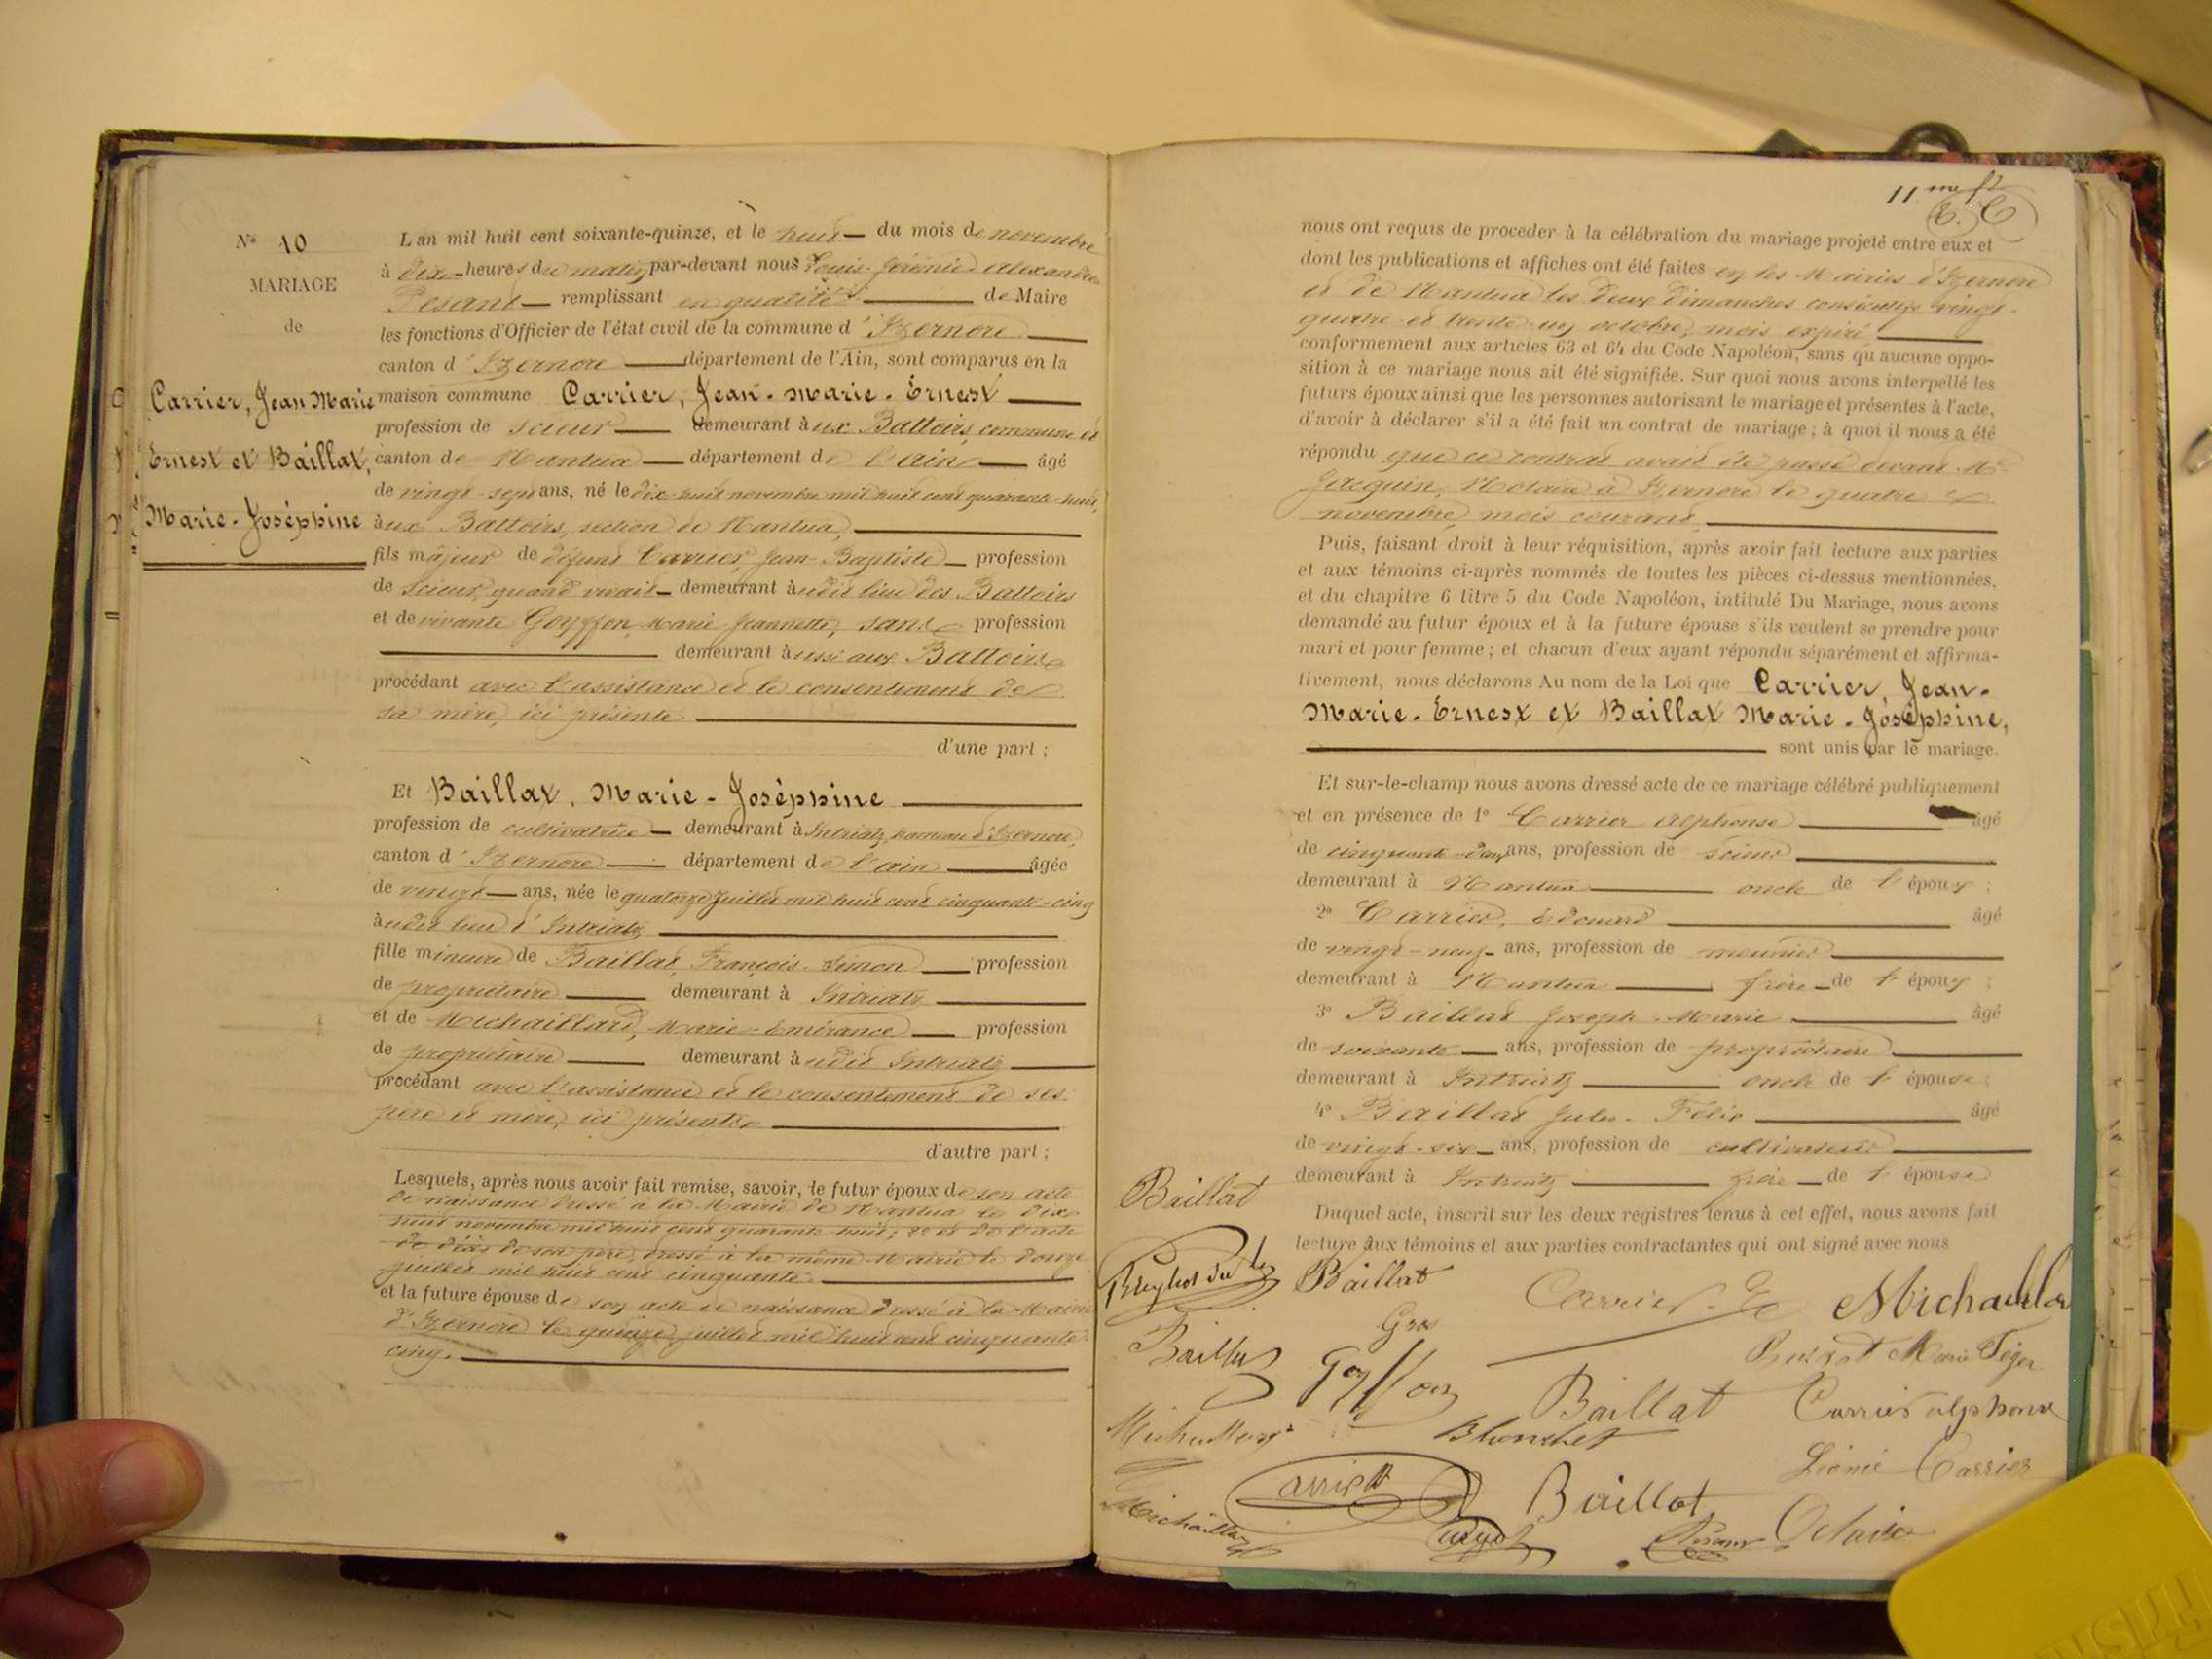 N° 10
MARIAGE
de
Carrier, Jean Marie
Ernest et Baillat,
Marie-Joséphine
L'an mil huit cent soixante-quinze, et le huit du mois de novembre
à dix heures du matin par-devant nous Louis Jérémie Alexandre
Pesant remplissant en qualité de Maire
les fonctions d'Officier de l'état civil de la commune d'Izernore
canton d'Izernore département de l'Ain, sont comparus en la
maison commune Carrier, Jean-Marie-Ernest
profession de scieur demeurant aux Battoirs, commune et
canton de Nantua département de l'Ain âgé
de vingt-sept ans, né le dix-huit novembre mil huit cent quarante-huit,
aux Battoirs, section de Nantua,
fils majeur de défunt Carrier, Jean-Baptiste profession
de scieur, quand vivait demeurant audit lieu des Battoirs
et de vivante Goyffon, Marie-Jeannette, sans profession
demeurant aussi aux Battoirs
procédant avec l'assistance et le consentement de
sa mère, ici présente
d'une part ;
Et Baillat, Marie-Joséphine
profession de cultivatrice demeurant à Intriatz, hameau d'Izernore,
canton d'Izernore département de l'Ain âgée
de vingt ans, née le quatorze juillet mil huit cent cinquante-cinq
audit lieu d'Intriatz
fille mineure de Baillat, François-Simon profession
de propriétaire demeurant à Intriatz
et de Michaillard, Marie-Emérance profession
de propriétaire demeurant audit Intriatz
procédant avec l'assistance et le consentement de ses
père et mère, ici présents
d'autre part ;
Lesquels, après nous avoir fait remise, savoir, le futur époux de son acte
de naissance dressé à la Mairie de Nantua le dix
huit novembre mil huit cent quarante huit ; et de l'acte
de décès de son père, dressé à la même Mairie le douze
juillet mil huit cent cinquante
et la future épouse de son acte de naissance dressé à la Mairie
d'Izernore le quinze juillet mil huit cent cinquante
cinq.
11me ft
nous ont requis de proceder à la célébration du mariage projeté entre eux et
dont les publications et affiches ont été faites en les Mairies d'Izernore
et de Nantua les deux Dimanches consécutifs vingt-
quatre et trente-un octobre, mois expiré,
conformement aux articles 63 et 64 du Code Napoléon, sans qu'aucune oppo-
sition à ce mariage nous ait été signifiée. Sur quoi nous avons interpellé les
futurs époux ainsi que les personnes autorisant le mariage et présentes à l'acte,
d'avoir à déclarer s'il a été fait un contrat de mariage ; à quoi il nous a été
répondu que ce contrat avait été passé devant Me
Jacquin, Notaire à Izernore le quatre
novembre, mois courant
Puis, faisant droit à leur réquisition, après avoir fait lecture aux parties
et aux témoins ci-après nommés de toutes les pièces ci-dessus mentionnées,
et du chapitre 6 titre 5 du Code Napoléon, intitulé Du Mariage, nous avons
demandé au futur époux et à la future épouse s'ils veulent se prendre pour
mari et pour femme ; et chacun d'eux ayant répondu séparément et affirma-
tivement, nous déclarons Au nom de la Loi que Carrier, Jean-
Marie-Ernest et Baillat Marie-Joséphine,
sont unis par le mariage.
Et sur-le-champ nous avons dressé acte de ce mariage célébré publiquement
et en présence de 1° Carrier Alphonse âgé
de cinquante-deux ans, profession de scieur
demeurant à Nantua oncle de l'époux ;
2° Carrier, Edouard âgé
de vingt-neuf ans, profession de meunier
demeurant à Nantua frère de l'époux ;
3° Baillat Joseph-Marie âgé
de soixante ans, profession de propriétaire
demeurant à Intriatz oncle de l'épouse ;
4° Baillat Jules-Félix âgé
de vingt-six ans, profession de cultivateur
demeurant à Intriatz frère de l'épouse
Duquel acte, inscrit sur les deux registres tenus à cet effet, nous avons fait
lecture aux témoins et aux parties contractantes qui ont signé avec nous
Baillat
Baillat
Carrier
Gros
Baillat
Goyffon
Baillat
Carrier alphonse
Blanchet
Carrier
Baillat
Octavie